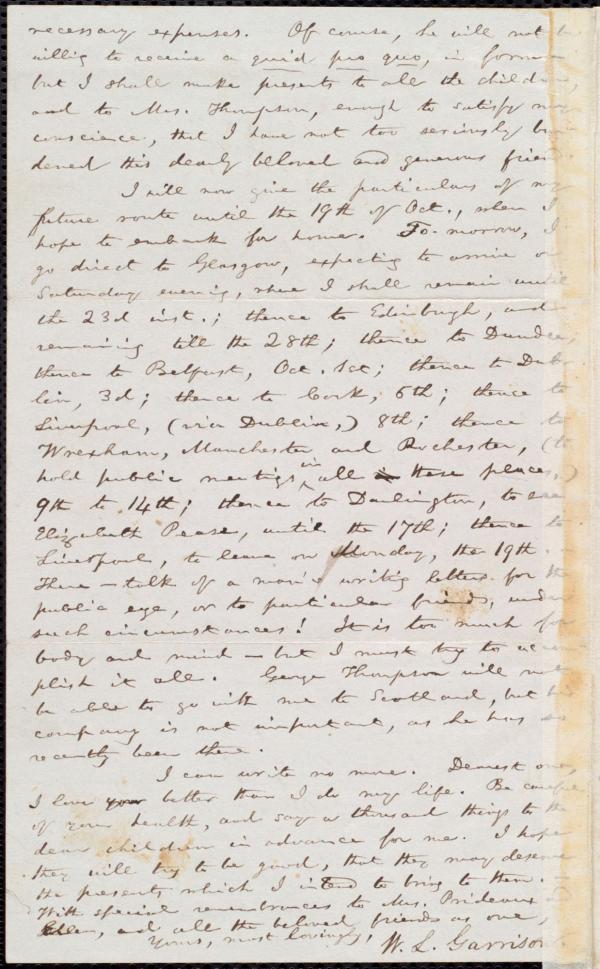 necessary expenses. Of course, he will not be
willig to receive a quid pro quo, in form
but I shall make presents to all the children,
and to Mrs. Thompson, enough to satisfy my
conscience, that I have not too seriously bur-
dened this dearly beloved and generous friend.
I will now give the particulars of my
future route until the 19th of Oct., when I
hope to embark for home. To-morrow, I
go direct to Glasgow, expecting to arrive on
Saturday evening, where I shall remain until
the 23d inst.; thence to Edinburgh, and
remaining till the 28th; thence to Dundee;
thence to Belfast, Oct. 1st; thence to Dub-
lin, 3d; thence to Cork, 6th; thence to
Liverpool, (via Dublin,) 8th; thence to
Wrexham, Manchester and Rochester, (to
hold public meetings in all these places,)
9th to 14th; thence to Darlington, to see
Elizabeth Pease, until the 17th; thence to
Liverpool, to leave on Monday, the 19th.
There — talk of a man's writig letters for the
public eye, or to particular friends, under
such circumstances! It is too much for
body and mind — but I must try to accom-
plish it all. George Thompson will not
be able to go with me to Scotland, but his
company is not important, as he has so
recently been there.
I can write no more. Dearest one,
I love you better than I do my life. Be careful
of your health, and say a thousand things to the
dear children in advance for me. I hope
they will try to be good, that they may deserve
the presents which I intend to bring to them.
With special remembrances to Mrs. Prideaux and
Ellen, and all the beloved friends as one,
Yours, most lovingly, W. L. Garrison.